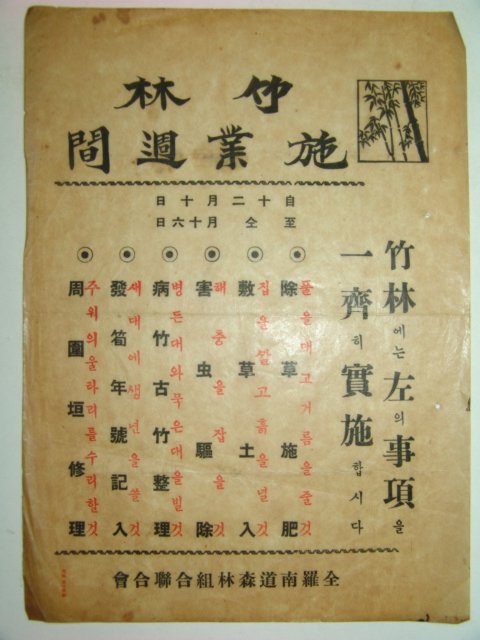 竹林
施業週間
自十二月十日
至仝月十六日
竹林에는左의事項을
一齊히實施합시다
除草施肥
풀을매고거름을줄것
敷草土入
집을깔고흙을널것
害虫驅除
해충을잡을것
病竹古竹整理
병든대와묵은대을빌것
發筍年號記入
새대에생년을쓸것
周圍垣修理
주위의울타리를수리할것
全羅南道森林組合聯合會